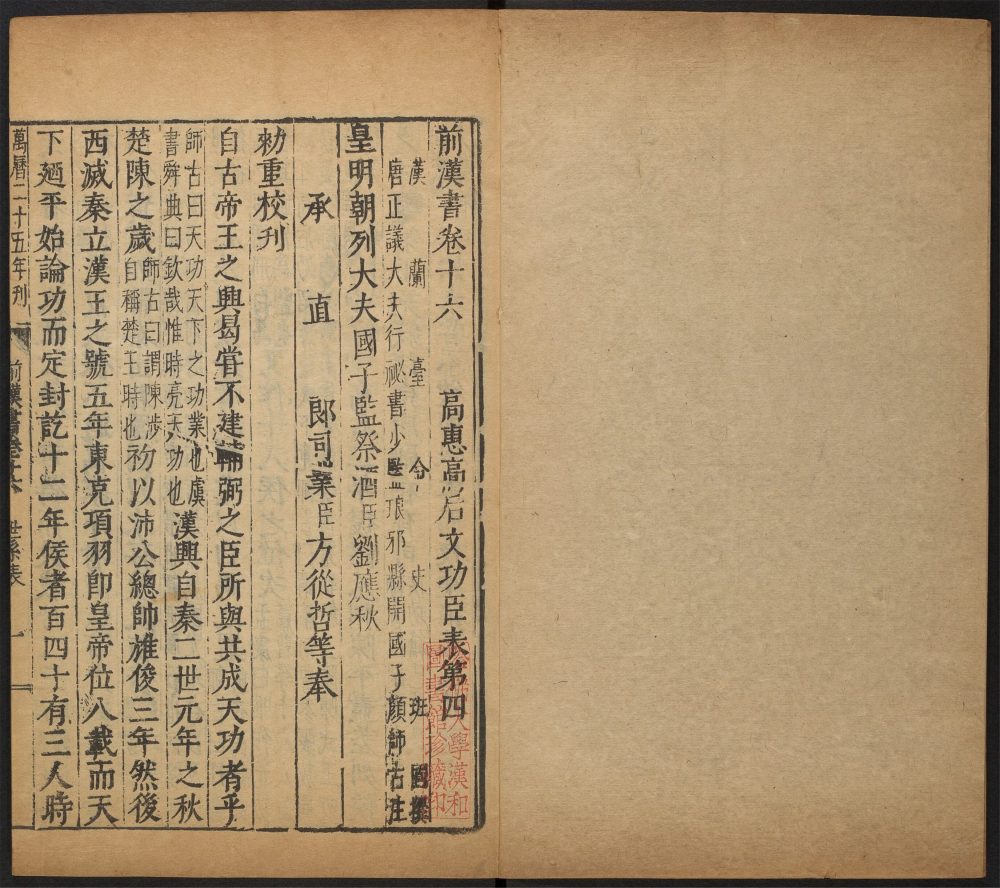 前漢書卷十六　高惠高后文功臣表第四
漢　蘭　臺　令　史　班　固撰
唐正議大夫行祕書少監琅邪縣開國子顏師古注
皇明朝列大夫國子監祭酒臣劉應秋
承　直　郎司業臣方從哲等奉
勑重校刊
自古帝王之興曷嘗不建輔弼之臣所與共成天功者乎
師古曰天功天下之功業也虞
書舜典曰欽哉惟時亮天功也
漢興自秦二世元年之秋
楚陳之歲
師古曰謂陳涉
自稱楚王時也
初以沛公總帥雄俊三年然後
西滅秦立漢王之號五年東克項羽即皇帝位八載而天
下廼平始論功而定封訖十二年侯者百四十有三人時
萬曆二十五年刊　前漢書卷十六　世系表　一
哈佛大學漢和
圖書館珍藏印